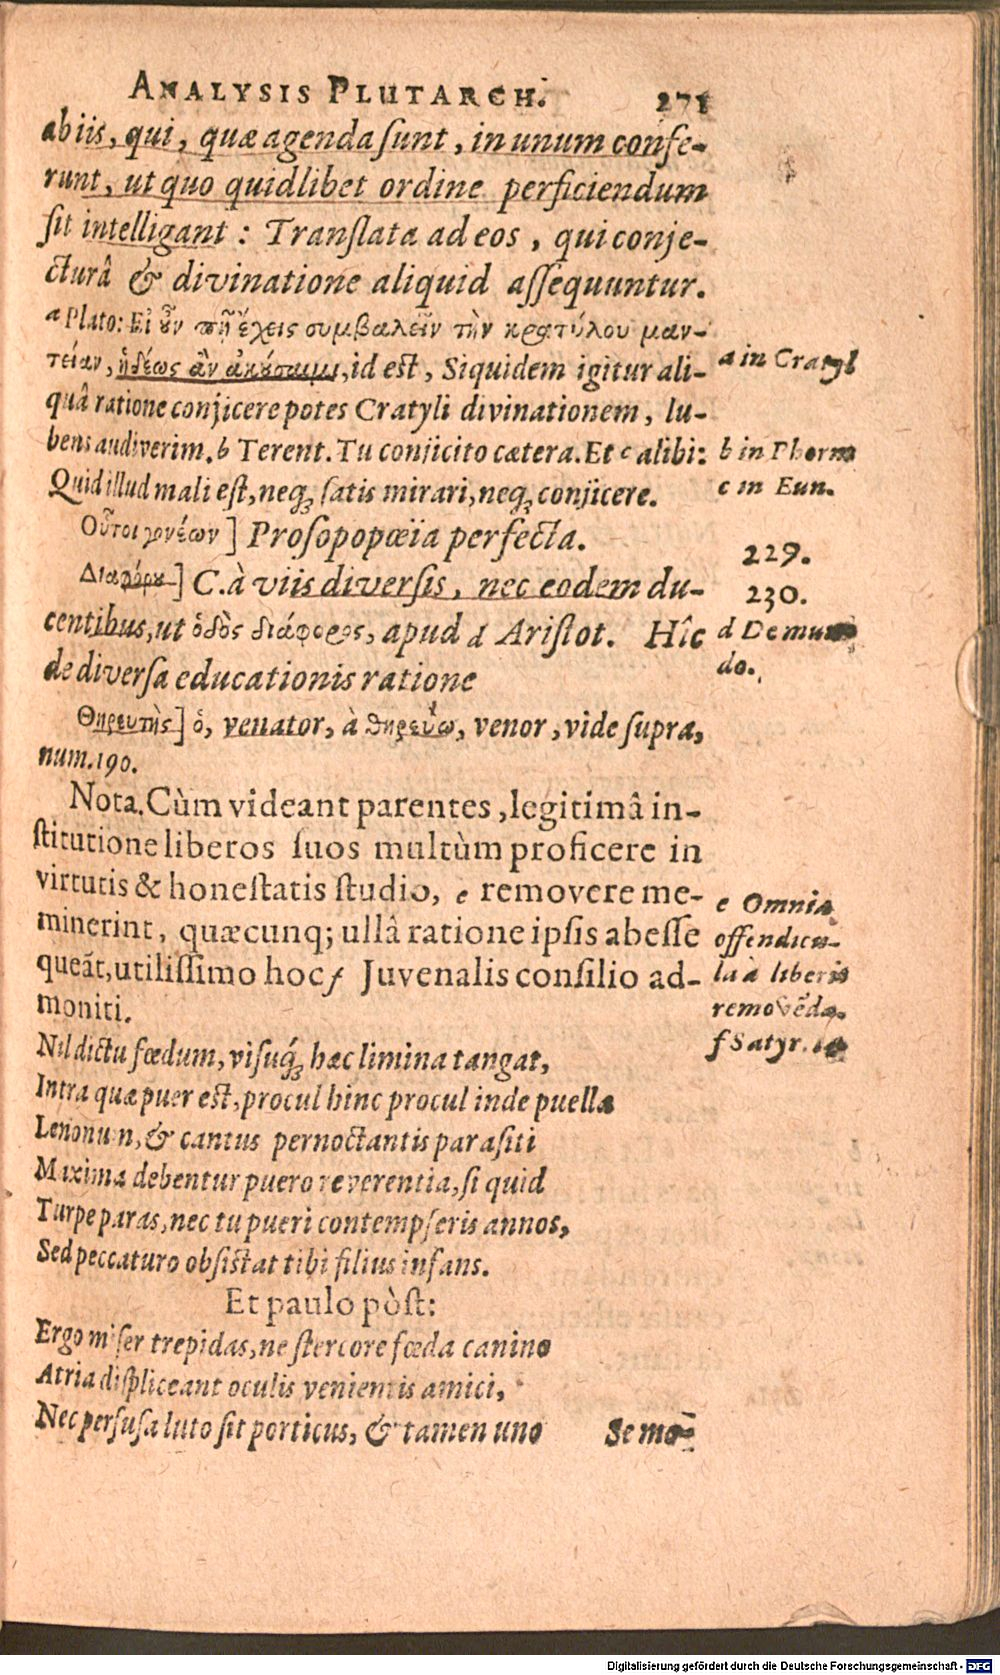 ANALYSIS PLUTARCH. 271
ab iis, qui, quæ agenda sunt, in unum confe-
runt, ut quo quidlibet ordine perficiendum
sit intelligant: Translata ad eos, qui conje-
cturâ & divinatione aliquid assequuntur.
a Plato: Εἰ ȣ̓͂ν πῆ ἔχεις συμβαλεῖν τὴν κρατύλου μαν-
τείαν, ἡδέως ἂν ἀκȣ́σαιμι, id est, Siquidem igitur ali-
a in Cratyl
quâ ratione conjicere potes Cratyli divinationem, lu-
bens audiverim. b Terent. Tu conjicito cætera. Et c alibi:
b in Phorm
Quid illud mali est, neq; satis mirari, neq; conjicere.
c in Eun.
Οὗτοι γονέων] Prosopopœiia perfecta.
229.
Διαφόρȣ] C. à viis diversis, nec eodem du-
230.
centibus, ut ὁδὸς διάφορος, apud d Aristot. Hîc
d De mun
de diversa educationis ratione
do.
Θηρευτὴς] ὁ, venator, à θηρεύω, venor, vide supra,
num. 190.
Nota. Cùm videant parentes, legitimâ in-
stitutione liberos suos multùm proficere in
virtutis & honestatis studio, e removere me-
e Omnia
minerint, quæcunq; ullâ ratione ipsis abesse
offendicu-
queãt, utilissimo hoc f Juvenalis consilio ad-
la à liberis
moniti.
removẽda.
Nil dictu fœdum, visuq́; hæc limina tangat,
f Satyr. 14
Intra quæ puer est, procul hinc procul inde puellæ
Lenonum, & cantus pernoctantis parasiti
Maxima debentur puero reverentia, si quid
Turpe paras, nec tu pueri contempseris annos,
Sed peccaturo obsistat tibi filius infans.
Et paulo pòst:
Ergo miser trepidas, ne stercore fœda canino
Atria displiceant oculis venientis amici,
Nec perfusa luto sit porticus, & tamen uno
Semo-
Digitalisierung gefördert durch die Deutsche Forschungsgemeinschaft - DFG